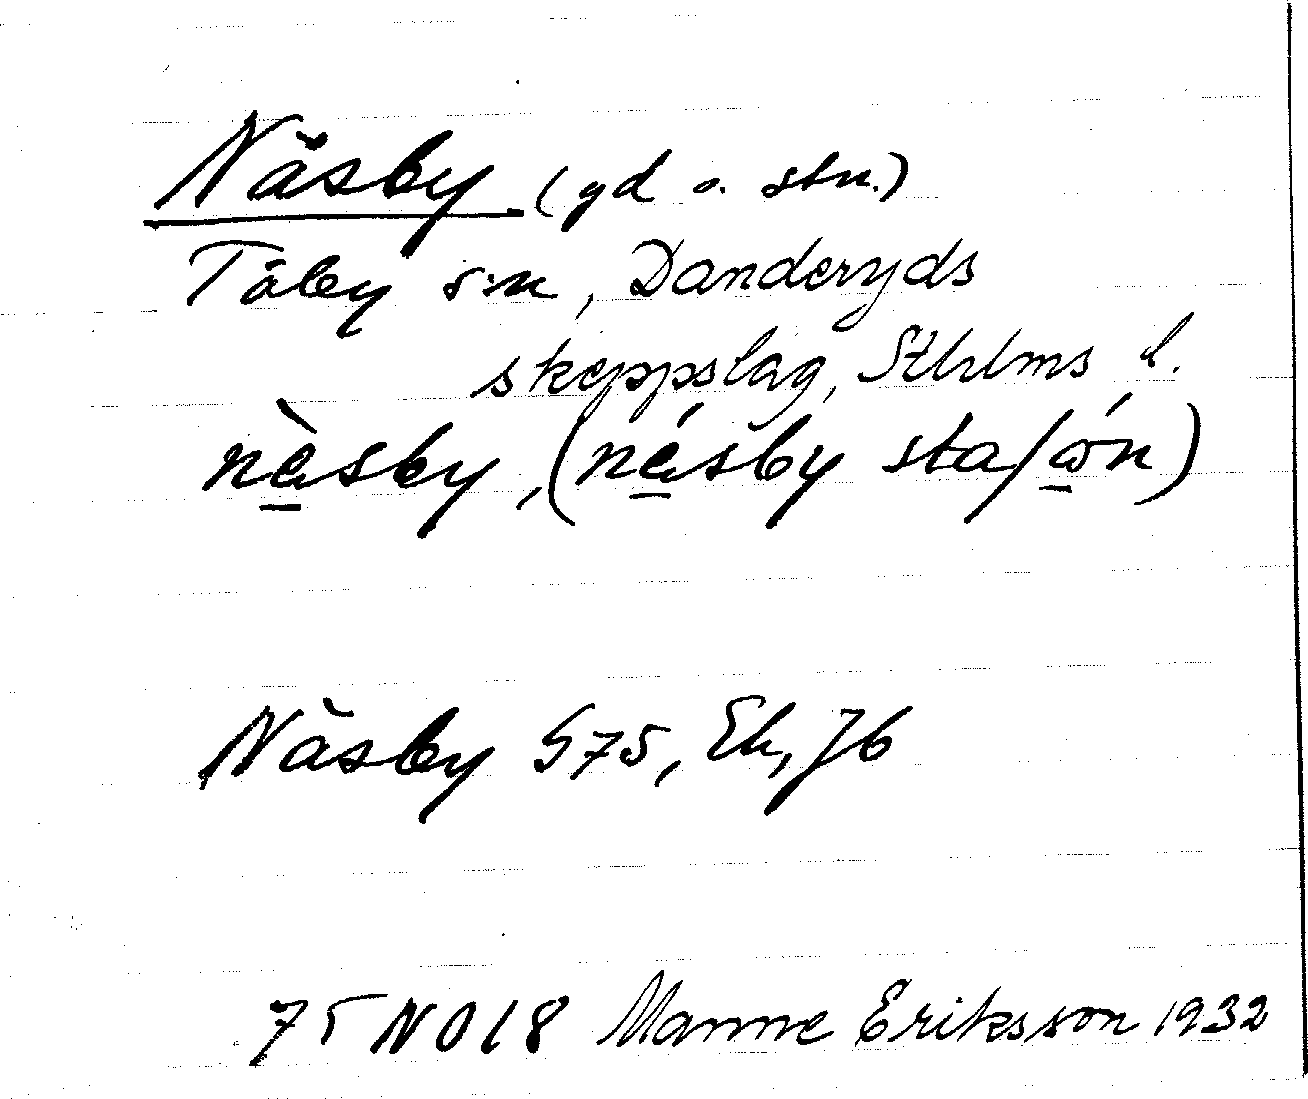 Näsby (gd o. stn.)
Täby s:n, Danderyds
skeppslag, Sthlms l.
nàsby, (násby sta/ón)
Näsby S75, Ek, Jb
75 NO 18 Manne Eriksson 1932